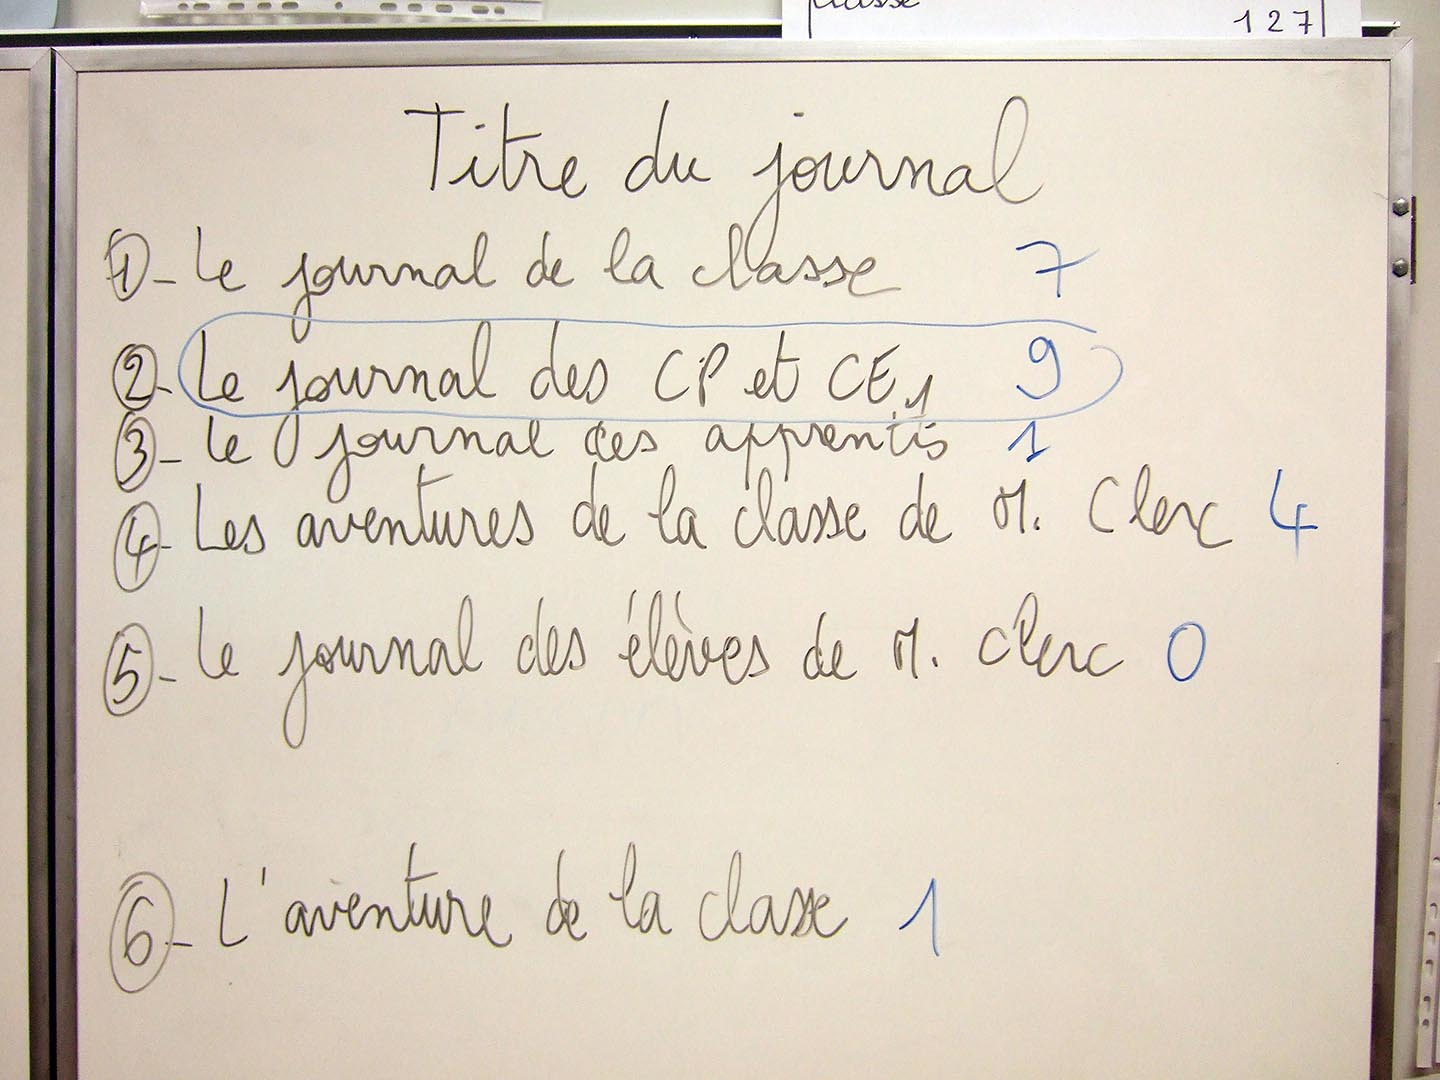 classe
127
Titre du journal
1 - Le journal de la classe 7
2 - Le journal des CP et CE1 9
3 - Le journal des apprentis 1
4 - Les aventures de la classe de M. Clerc 4
5 - Le journal des élèves de M. Clerc 0
6 - L'aventure de la classe 1